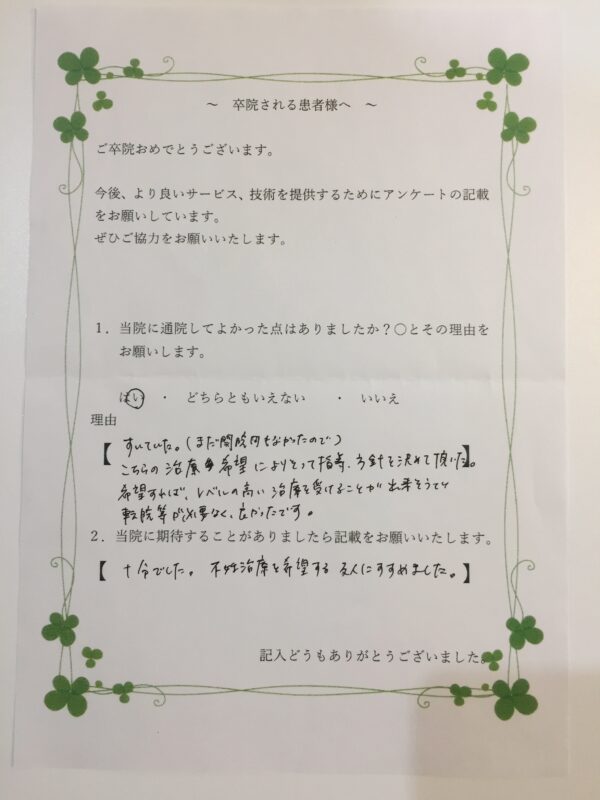 ～ 卒院される患者様へ ～
ご卒院おめでとうございます。
今後、より良いサービス、技術を提供するためにアンケートの記載
をお願いしています。
ぜひご協力をお願いいたします。
1. 当院に通院してよかった点はありましたか？○とその理由を
お願いします。
はい ・ どちらともいえない ・ いいえ
理由
【 すいていた。(まだ開院間もなかったので)
こちらの治療希望によりそって指導、方針を決めて頂いた。】
希望すれば、レベルの高い治療を受けることが出来そうで
転院等が必要なく、良かったです。
2. 当院に期待することがありましたら記載をお願いいたします。
【 十分でした。不妊治療を希望する友人にすすめました。】
記入どうもありがとうございました。